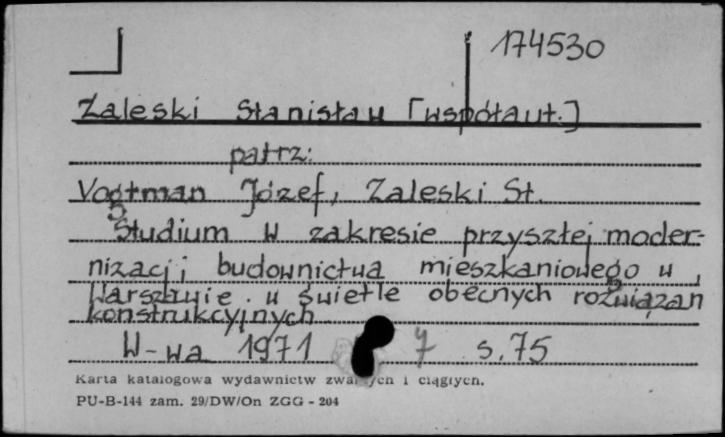 174530
Zaleski Stanisław [współaut.]
patrz:
Vogtman Józef, Zaleski St.
Studium w zakresie przyszłej moder-
nizacji budownictwa mieszkaniowego w
Warszawie w świetle obecnych rozwiązań
konstrukcyjnych
W-wa 1971 7 s. 75
Karta katalogowa wydawnictw zwartych i ciągłych.
PU-B-144 zam. 29/DW/On ZGG - 204